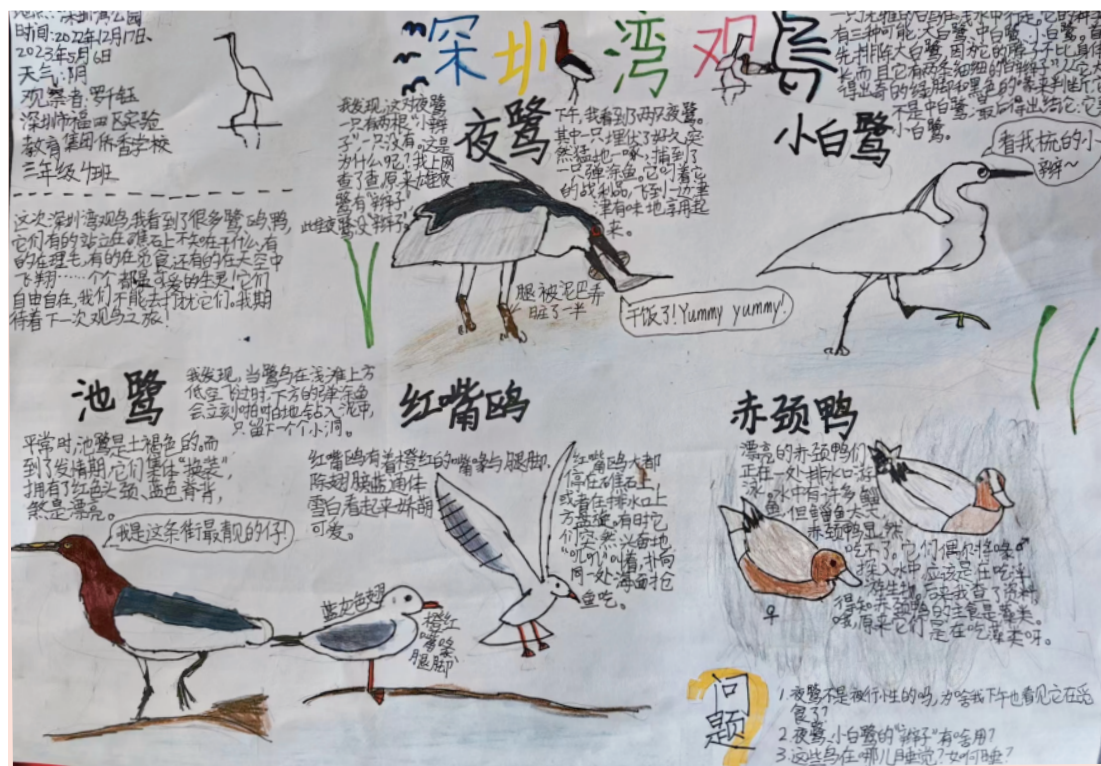 深圳湾观鸟
时间:2022年12月17日、
2023年5月6日
天气:阴
深圳市福田区实验
教育集团侨香学校
三年级4班
这次深圳湾观鸟我看到了很多鹭、鸥、鸭,
它们有的站立在礁石上不知在干什么,有
的在理毛,有的在觅食还有的在天空中
飞翔……个个都是可爱的生灵!它们
自由自在,我们不能去打扰它们。我期
待着下一次观鸟之旅!
夜鹭
我发现,这对夜鹭
一只有两根“小辫
子”,一只没有。这是
为什么呢?我上网
查了查,原来,雄夜
鹭有“辫子”
此雌夜鹭没“辫子”。
下午,我看到了两只夜鹭。
其中一只埋伏了好久,突
然猛地一啄,捕到了
一只弹涂鱼。它叼着它
的战利品,飞到一边津
津有味地享用起
来。
腿被泥巴弄
脏了一半
干饭了!Yummy yummy!
小白鹭
一只优雅的白鸟在浅水中行走。它的种
有三种可能:大白鹭、中白鹭、小白鹭。首
先排除大白鹭,因为它的脖子不比身体
长,而且它有两条细细的“辫子”
不是中白鹭,最后得出结论:它
小白鹭。
看我梳的小
辫~
池鹭
我发现,当鹭鸟在浅滩上方
低空飞过时,下方的弹涂鱼
会立刻啪啪啪地钻入泥中,
只留下一个个小洞。
平常时,池鹭是土褐色的。而
到了发情期,它们集体“换装”,
拥有了红色头颈、蓝色脊背,
煞是漂亮。
我是这条街最靓的仔!
红嘴鸥
红嘴鸥有着橙红的嘴喙与腿脚,
除翅膀蓝通体
雪白看起来娇萌
可爱。
红嘴鸥大都
停在礁石上,
或者在排水口上
方盘旋。有时它
们突然兴奋地
“叽叽”叫着,扑向
同一处海面抢
鱼吃。
蓝灰色翅
橙红
嘴喙
腿脚
赤颈鸭
漂亮的赤颈鸭们
正在一处排水口游
泳。水中有许多鲻
鱼,但鲻鱼太大,
赤颈鸭显然
吃不了。它们偶尔将喙
探入水中,应该是在吃浮
游生物。后来我查了资料
得知赤颈鸭的主食是藻类。
哦,原来它们是在吃藻类呀。
♂
♀
问题
1.夜鹭不是夜行性的吗,为啥我下午也看见它在觅
食了?
2.夜鹭、小白鹭的“辫子”有啥用?
3.这些鸟在哪儿睡觉?如何睡?